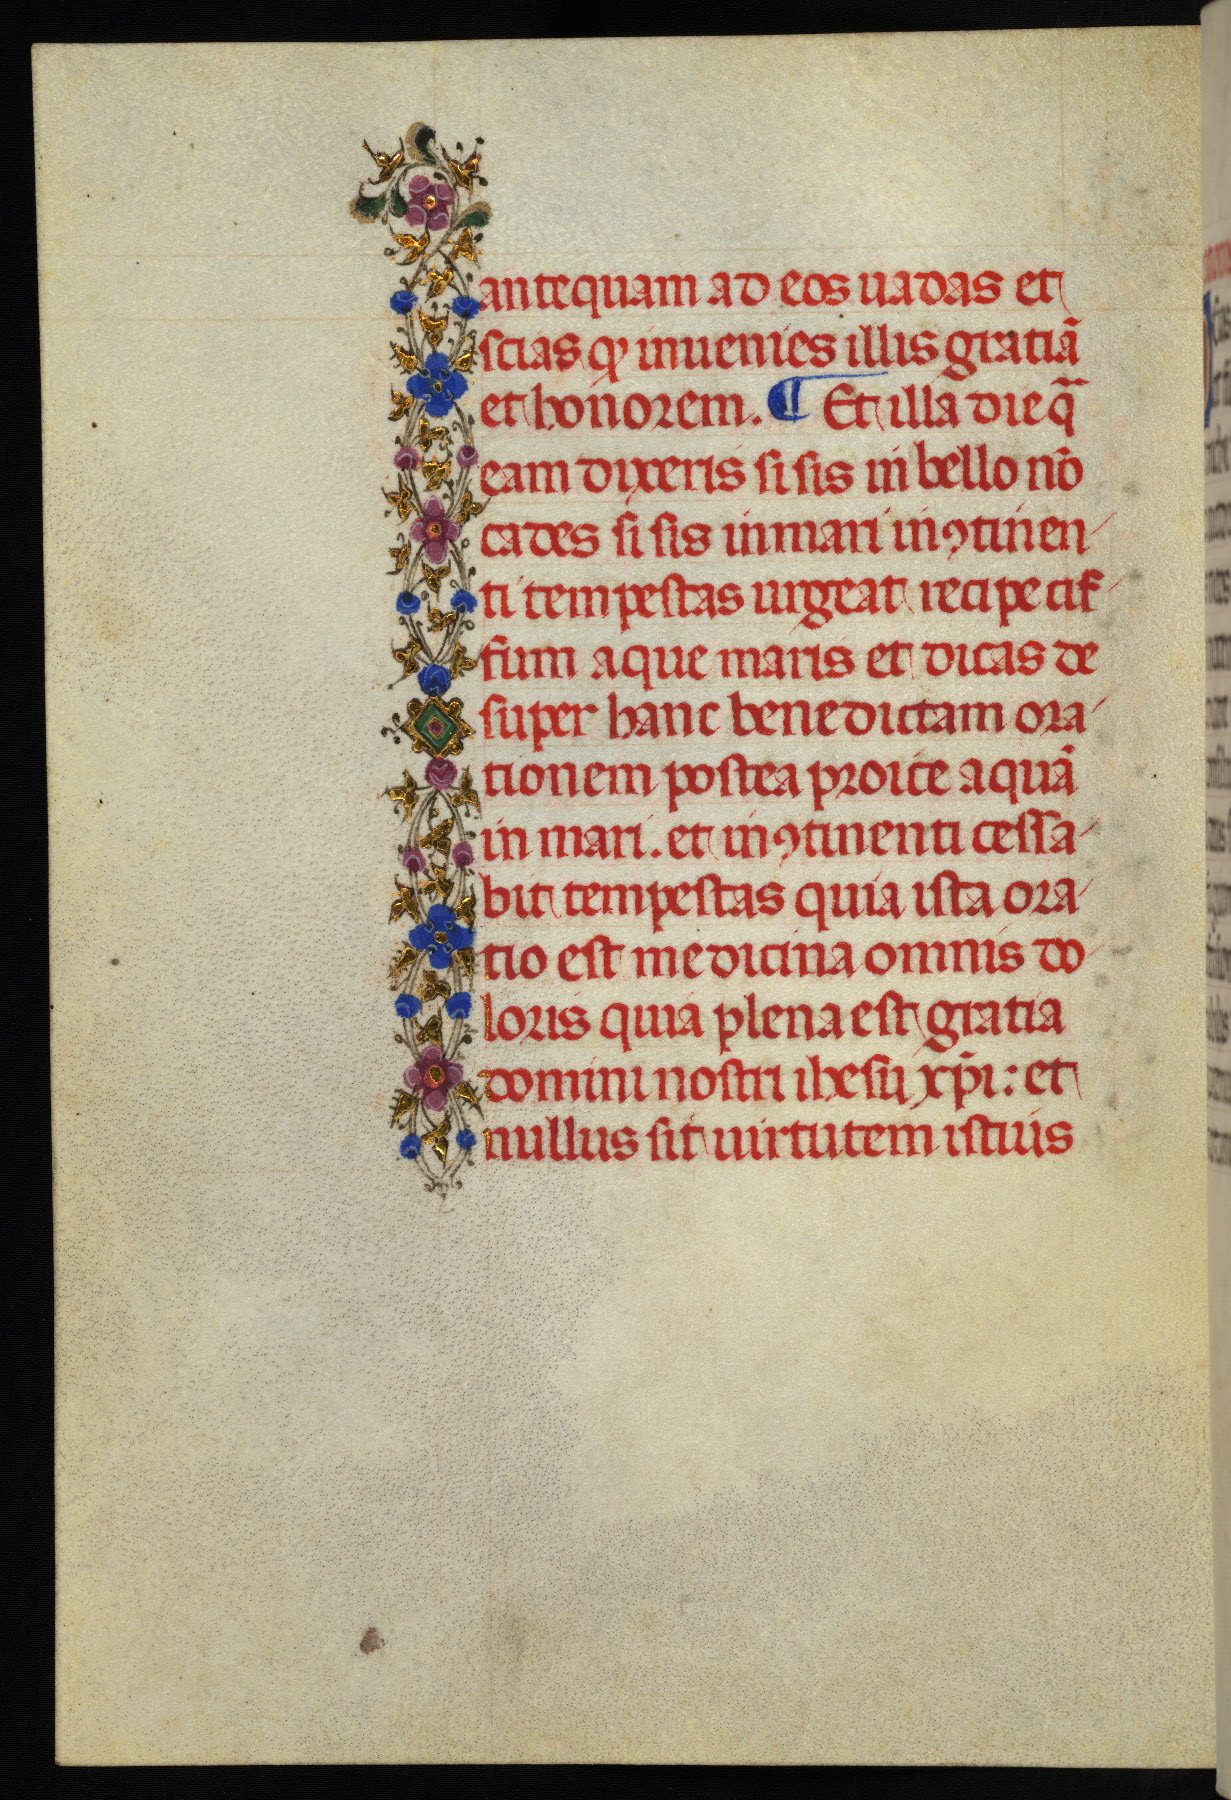 antequam ad eos uadas et
scias qꝫ inuenies illis gratiã
et honorem. ¶ Et illa die q̃
eam dixeris si sis in bello nõ
cades si sis in mari in ꝯtinen
ti tempestas urgeat recipe cif
fum aque maris et dicas de
super hanc benedictam ora
tionem postea proice aquã
in mari. et in ꝯtinenti cessa
bit tempestas quia ista ora
tio est medicina omnis do
loris quia plena est gratia
domini nostri ihesu xp̃i: et
nullus sit uirtutem istius